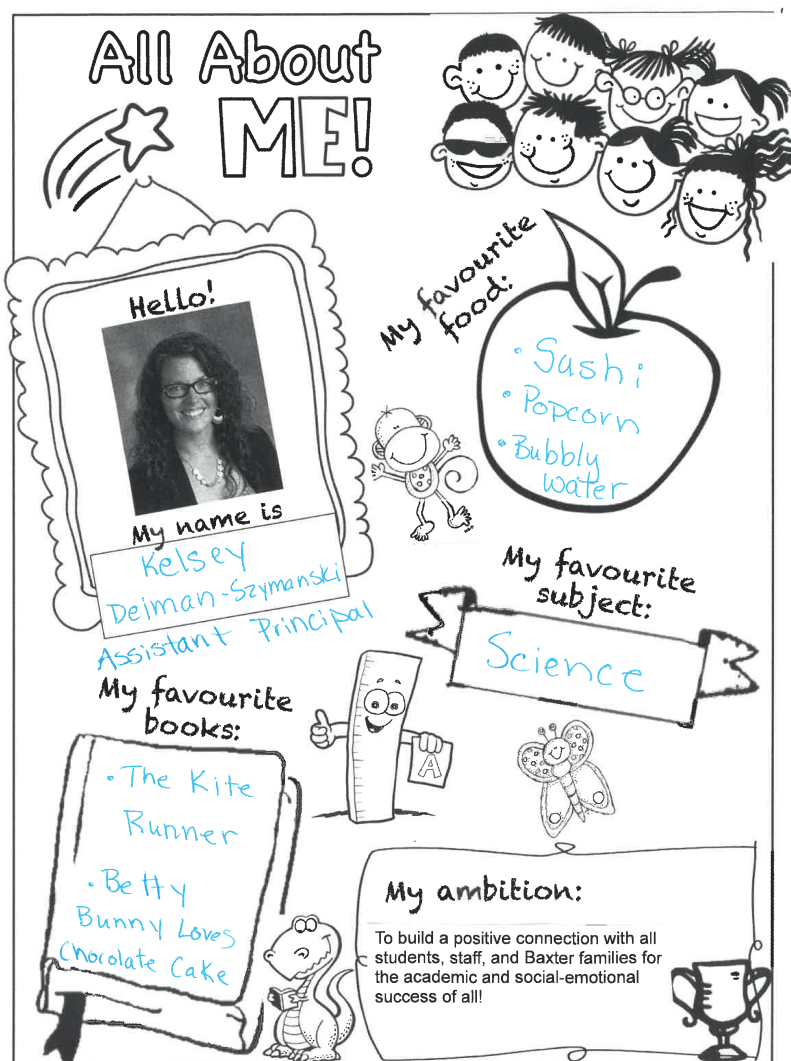 All About
ME!
Hello!
My name is
Kelsey
Deiman-Szymanski
Assistant Principal
My favourite
food:
• Sushi
• Popcorn
• Bubbly
water
My favourite
subject:
Science
My favourite
books:
• The Kite
Runner
• Betty
Bunny Loves
Chocolate Cake
A
My ambition:
To build a positive connection with all
students, staff, and Baxter families for
the academic and social-emotional
success of all!